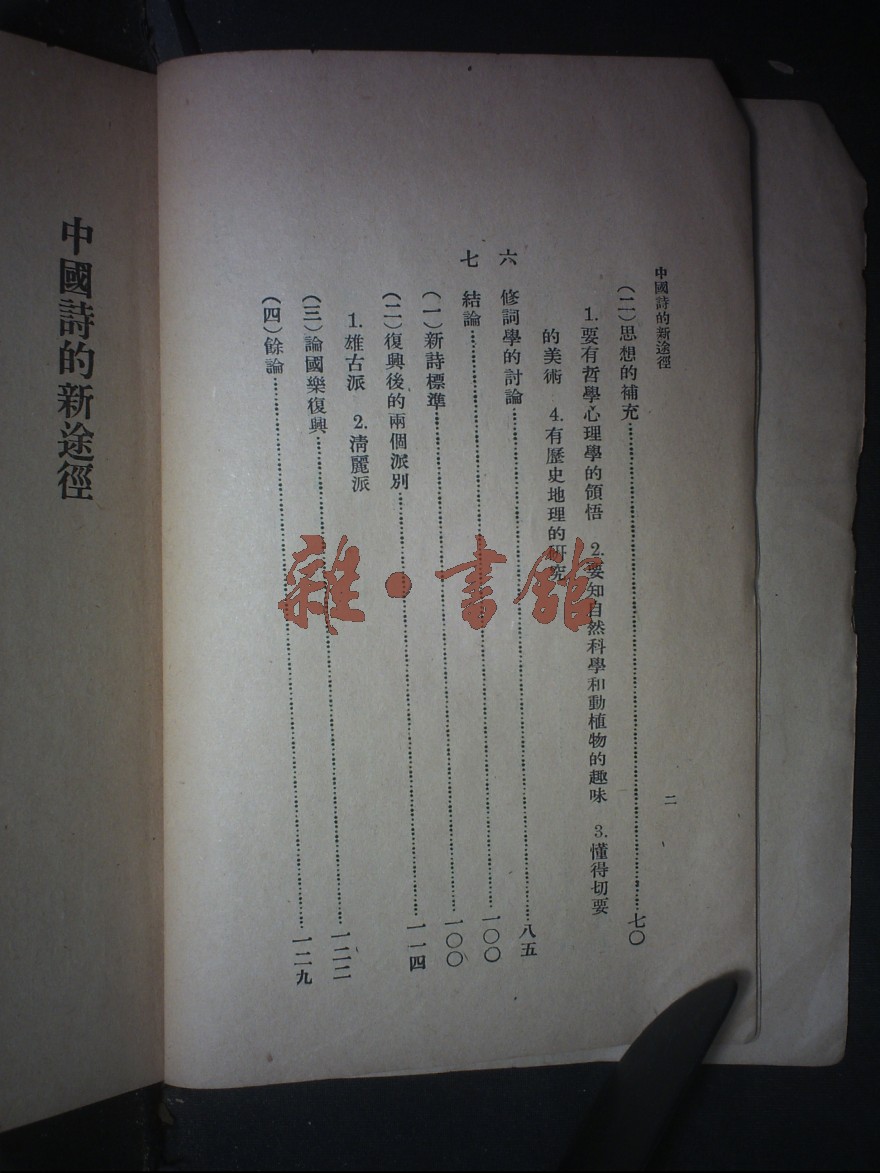 中國詩的新途徑
二
(二)思想的補充……七〇
1.要有哲學心理學的領悟 2.要知自然科學和動植物的趣味 3.懂得切要
的美術 4.有歷史地理的研究
六 修詞學的討論……八五
七 結論……一〇〇
(一)新詩標準……一〇〇
(二)復興後的兩個派別……一一四
1.雄古派 2.清麗派
(三)論國樂復興……一二二
(四)餘論……一二九
中國詩的新途徑
雜·書館